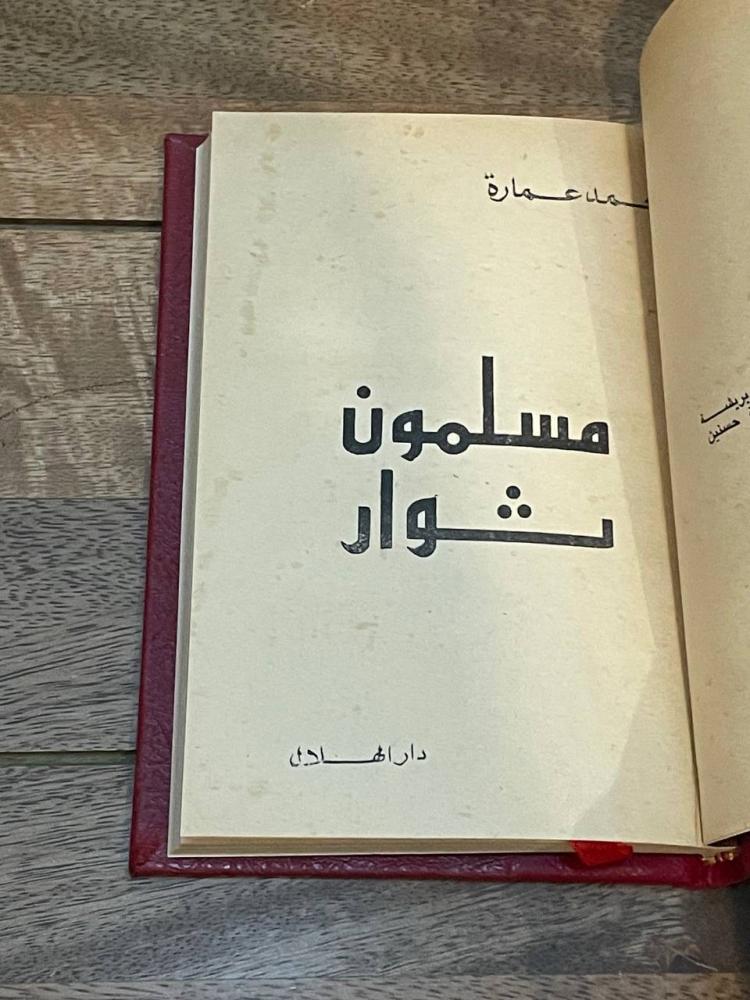 محمد عمارة
مسلمون
ثوار
دار الهلال
بريشة
حسنين